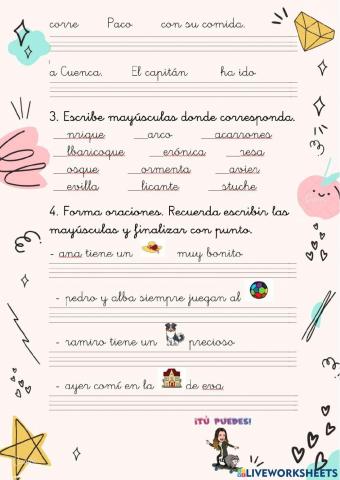 corre Paco con su comida.
a Cuenca. El capitán ha ido
3. Escribe mayúsculas donde corresponda.
__nrique __arco __acarrones
__lbaricoque __erónica __resa
__osque __ormenta __avier
__evilla __licante __stuche
4. Forma oraciones. Recuerda escribir las
mayúsculas y finalizar con punto.
- ana tiene un muy bonito
- pedro y alba siempre juegan al
- ramiro tiene un precioso
- ayer comí en la de eva
¡TÚ PUEDES!
LIVEWORKSHEETS